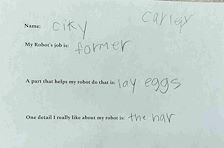 Name: ciky carley
My Robot's job is: former
A part that helps my robot do that is: lay eggs
One detail I really like about my robot is: the har